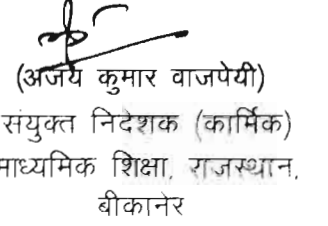 (अजय कुमार वाजपेयी)
संयुक्त निदेशक (कार्मिक)
माध्यमिक शिक्षा, राजस्थान,
बीकानेर